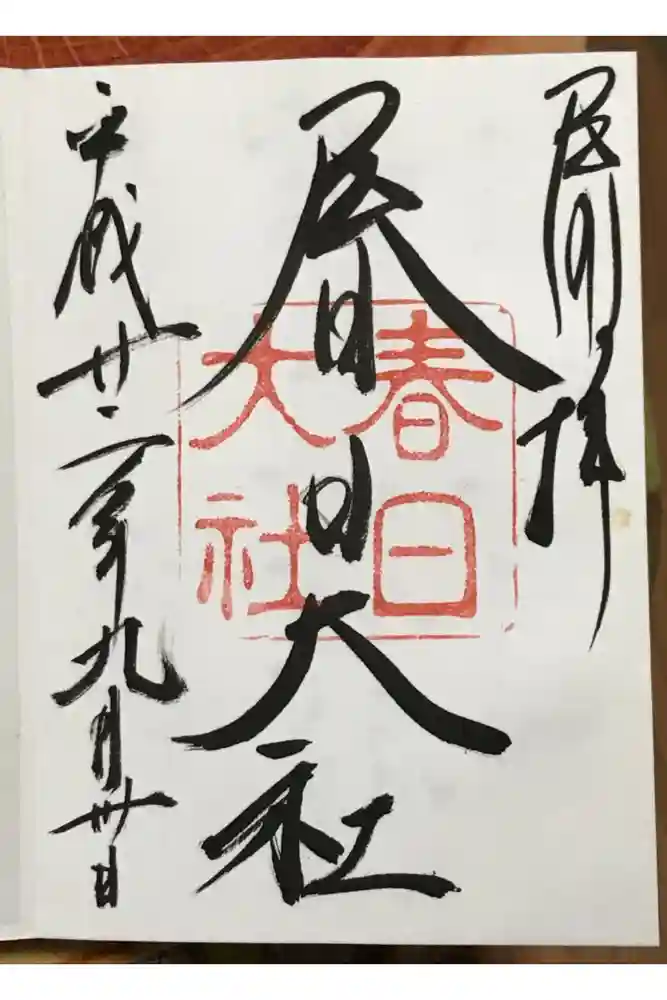 拝
春日大社
平成廿二年九月卅日
春日
大社